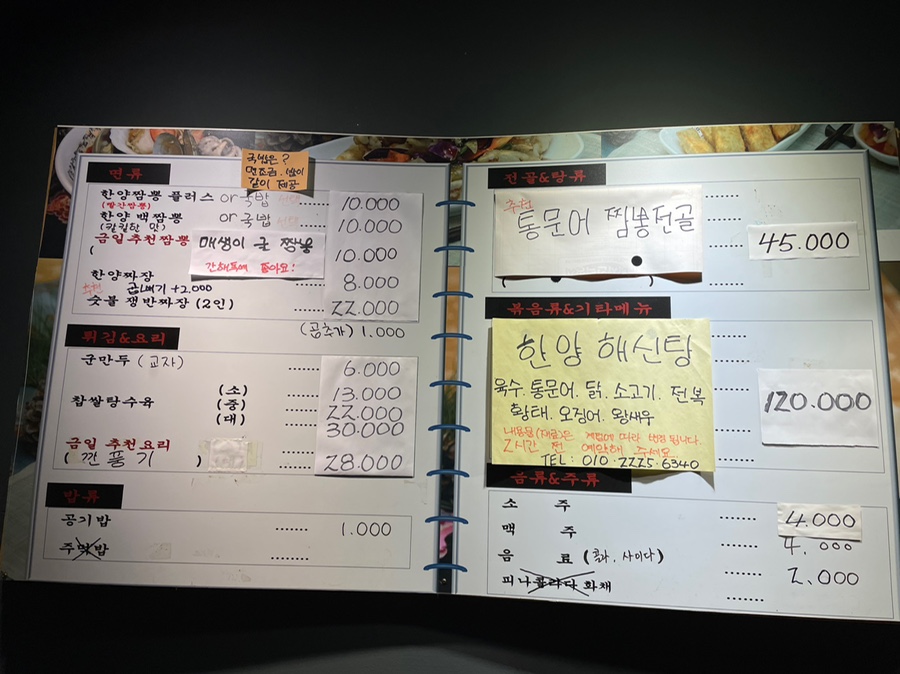 면류
국밥은?
면조금, 밥이
같이 제공
한양짬뽕 플러스 or 국밥 선택 10.000
(빨간짬뽕)
한양 백짬뽕 or 국밥 선택 10.000
(칼칼한 맛)
금일추천짬뽕 매생이 굴 짬뽕 10.000
( 간해독에 좋아요!
한양짜장 8.000
추천 곱빼기 +2.000
숯불 쟁반짜장 (2인) 22.000
(곱추가) 1.000
튀김&요리
군만두 (교자) 6.000
찹쌀탕수육 (소) 13.000
(중) 22.000
(대) 30.000
금일 추천요리
( 깐풍기 ) 28.000
밥류
공기밥 1.000
주먹밥
전골&탕류
추천
통문어 짬뽕전골 45.000
볶음류&기타메뉴
한양 해신탕
육수. 통문어. 닭. 소고기. 전복
황태. 오징어. 왕새우 120.000
내용물(재료)은 계절에 따라 변경 됩니다.
2시간 전 예약해 주세요
TEL: 010.2225.6340
음류&주류
소 주 4.000
맥 주 4.000
음 료 (콜라, 사이다) 2.000
피나콜라다 화채